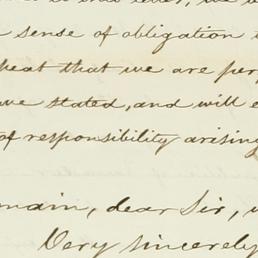 sense of obligation
that we are
stated, and will
of responsibility arising
dear Sir,
Very sincerely